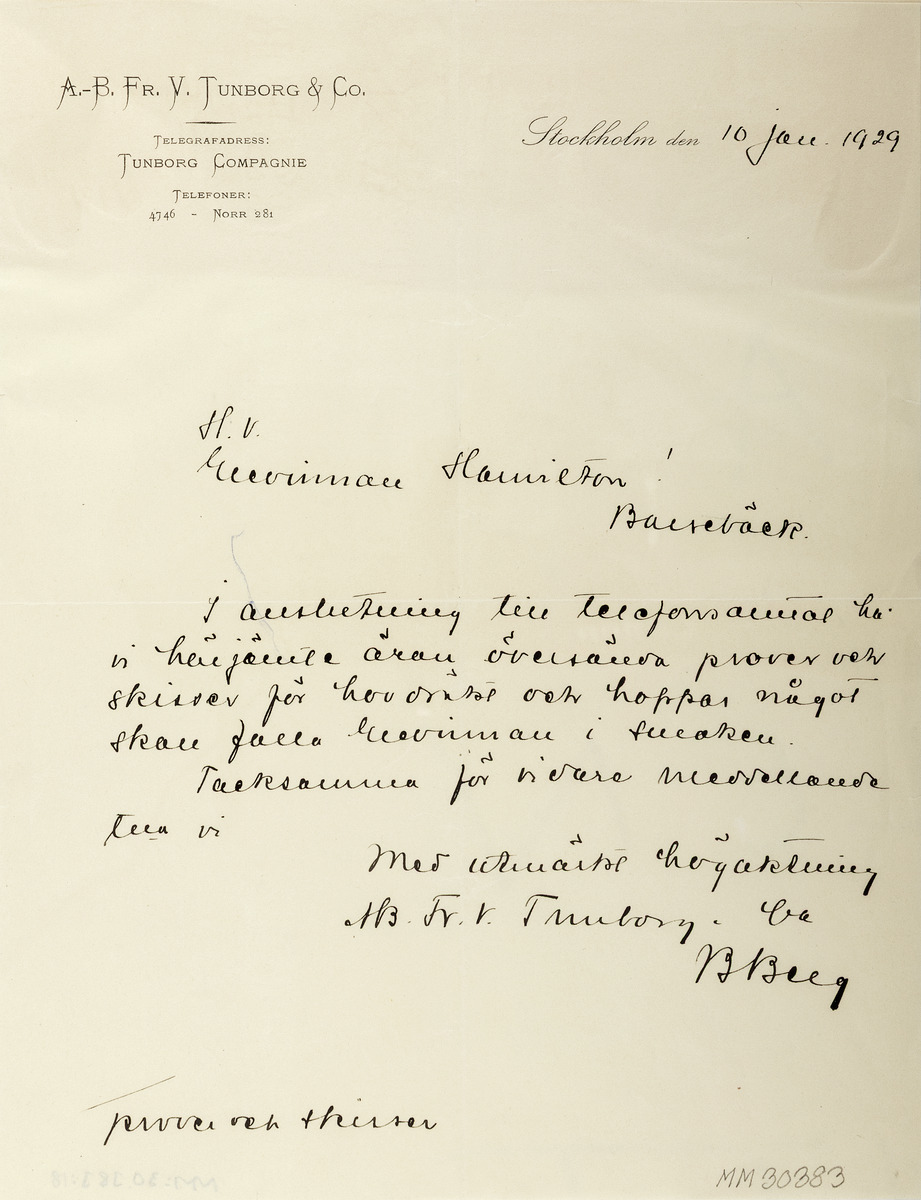 A.-B. Fr. V. Tunborg & Co.
Telegrafadress:
Tunborg Compagnie
Telefoner:
4746 - Norr 281
Stockholm den 10 jan. 1929
H. V.
Grevinnan Hamilton!
Barsebäck.
I anslutning till telefonsamtal ha
vi härjämte äran översända prover och
skisser för hovdräkt och hoppas något
skall falla Grevinnan i smaken.
Tacksamma för vidare meddelande
teckna vi
Med utmärkt högaktning
AB. Fr. V. Tunborg. Co
B Berg
prover och skisser
MM 30383